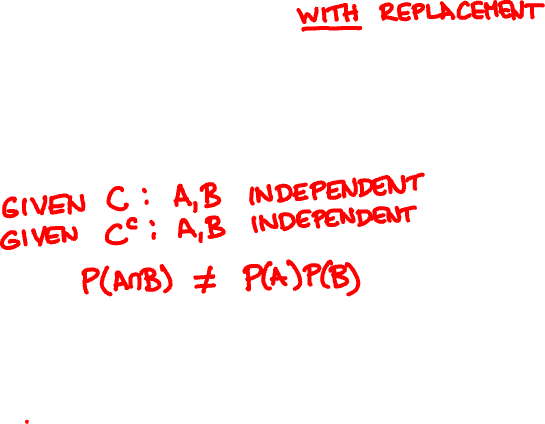 WITH REPLACEMENT
GIVEN C : A,B INDEPENDENT
GIVEN Cᶜ : A,B INDEPENDENT
P(A∩B) ≠ P(A)P(B)